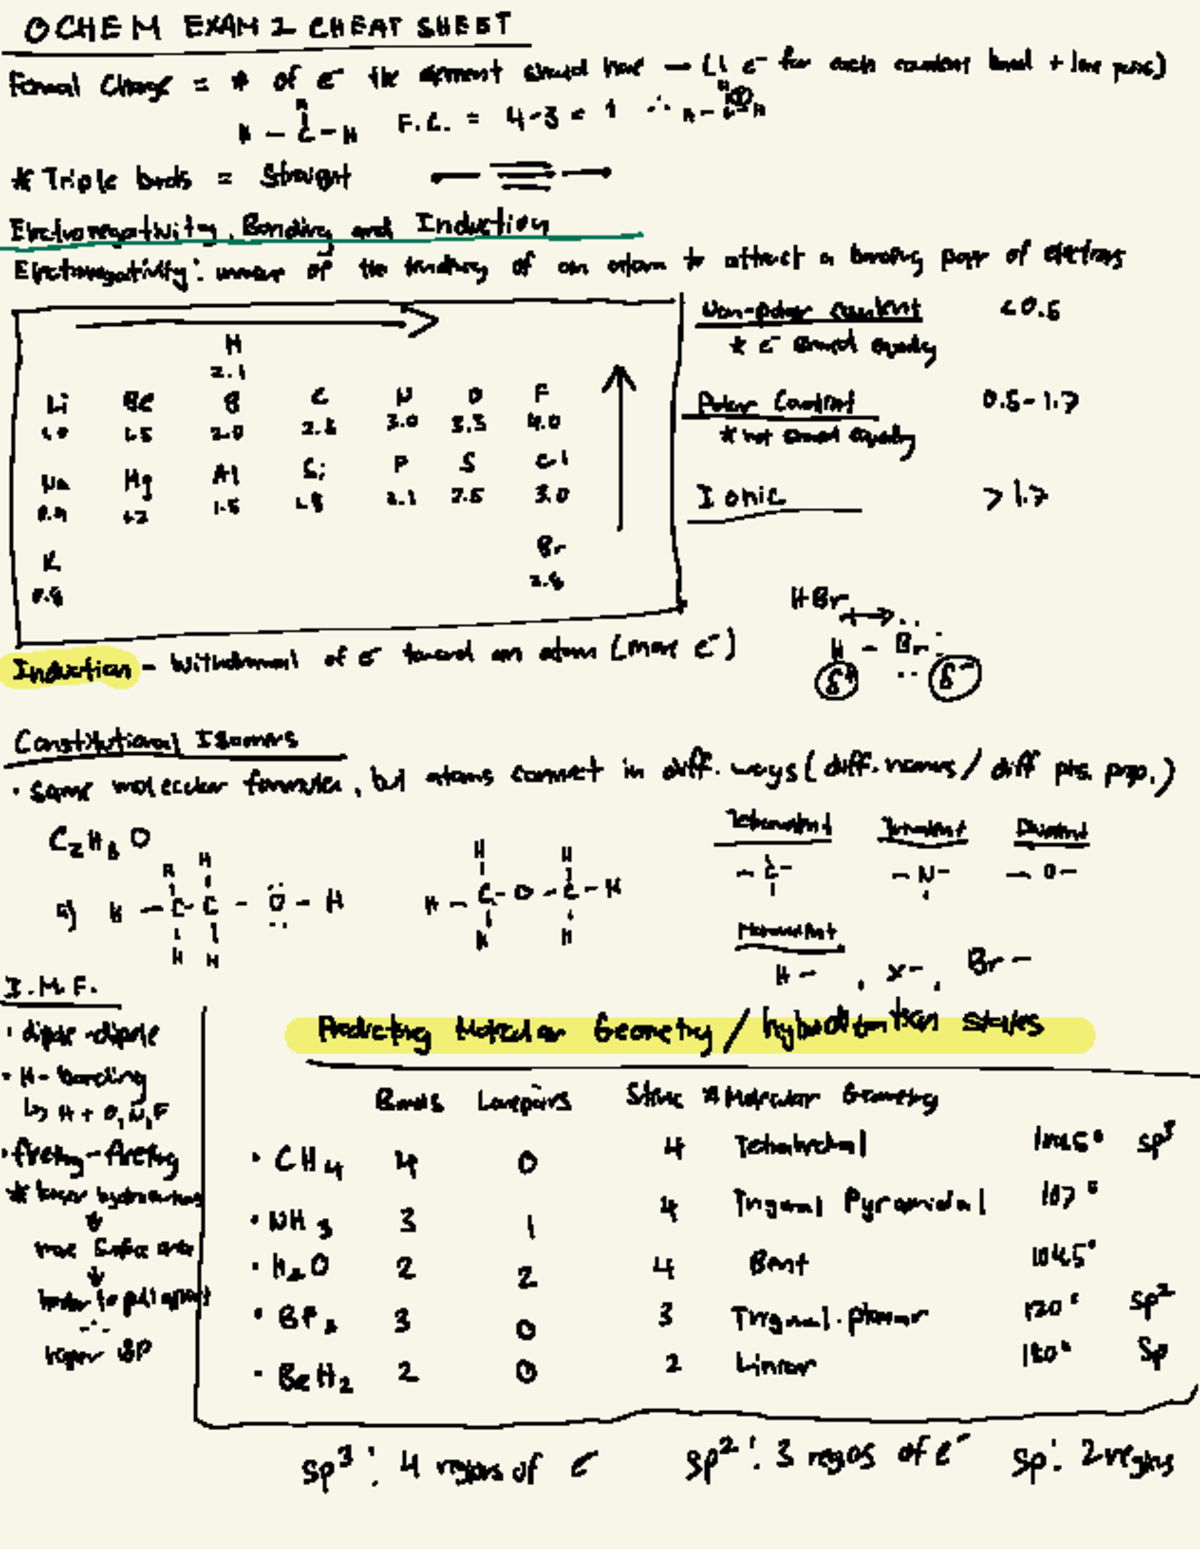 OCHEM EXAM 2 CHEAT SHEET
Formal Charge = # of e⁻ the element should have — (1 e⁻ for each covalent bond + lone pairs)
H
H – C – H F.C. = 4-3 = 1 ∴ H – C – H
* Triple bonds = Straight
Electronegativity, Bonding and Induction
Electronegativity: measure of the tendency of an atom to attract a bonding pair of electrons
H
2.1
Li Be B C N O F
1.0 1.5 2.0 2.5 3.0 3.5 4.0
Na Mg Al Si P S Cl
0.9 1.2 1.5 1.8 2.1 2.5 3.0
K Br
0.8 2.8
Non-polar covalent <0.5
* e⁻ shared equally
Polar Covalent 0.5-1.7
* not shared equally
Ionic >1.7
HBr
H – Br
δ⁺ δ⁻
Induction – Withdrawal of e⁻ toward an atom (more e⁻)
Constitutional Isomers
• same molecular formula, but atoms connect in diff. ways (diff. names / diff phs. prop.)
C₂H₆O
H H
H – C – C – O – H
H H
H H
H – C – O – C – H
H H
Tetravalent Trivalent Divalent
– C – – N – – O –
Monovalent
H – , X – , Br –
I.M.F.
• dipole-dipole
• H-bonding
↳ H + O, N, F
• fleeting-fleeting
* larger hydrocarbons
↓
more surface area
↓
harder to pull apart
∴
higher BP
Predicting Molecular Geometry / hybridization states
Bonds Lonepairs Steric # Molecular Geometry
• CH₄ 4 0 4 Tetrahedral 109.5° sp³
• NH₃ 3 1 4 Trigonal Pyramidal 107°
• H₂O 2 2 4 Bent 104.5°
• BF₃ 3 0 3 Trigonal planar 120° sp²
• BeH₂ 2 0 2 Linear 180° sp
sp³: 4 regions of e⁻ sp²: 3 regions of e⁻ sp: 2 regions